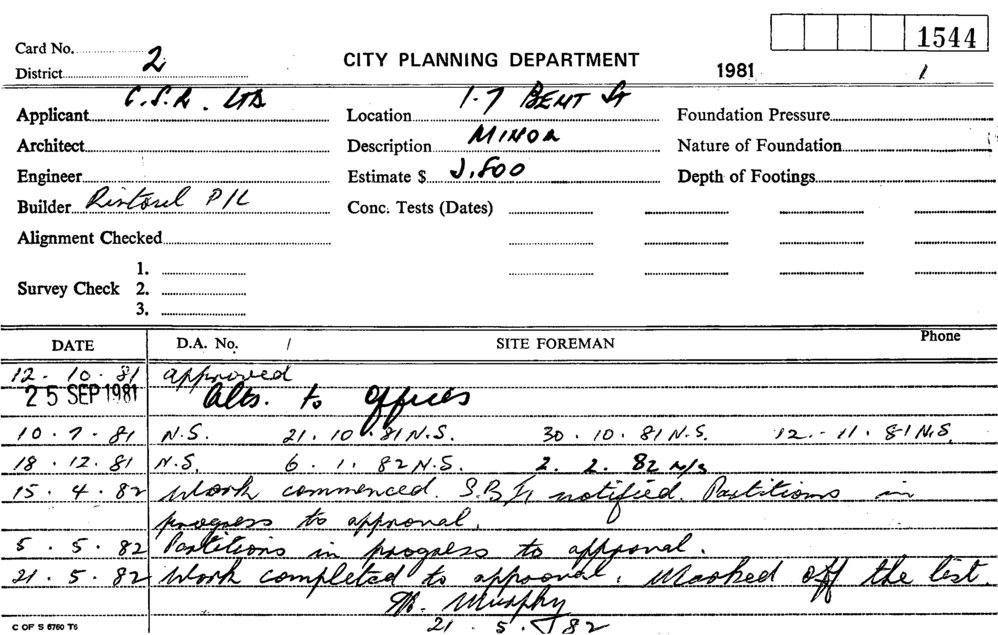 1544
Card No. 2
District
CITY PLANNING DEPARTMENT
1981 /
Applicant C.S.R. LTD
Location 1-7 BENT St
Foundation Pressure
Architect
Description MINOR
Nature of Foundation
Engineer
Estimate $ 2,800
Depth of Footings
Builder P/L
Conc. Tests (Dates)
Alignment Checked
Survey Check
1.
2.
3.
DATE D.A. No. / SITE FOREMAN Phone
12. 10. 81 approved
25 SEP 1981 Alts. to Offices
10. 7. 81 N.S. 21. 10. 81 N.S. 30. 10. 81 N.S. 12. 11. 81 N.S.
18. 12. 81 N.S. 6. 1. 82 N.S. 2. 2. 82 N/S
15. 4. 82 Work commenced. notified. Partitions in
progress to approval.
5. 5. 82 Partitions in progress to approval.
21. 5. 82 Work completed to approval. Marked off the list.
M. Murphy
21. 5. 82
C OF S 6760 T6